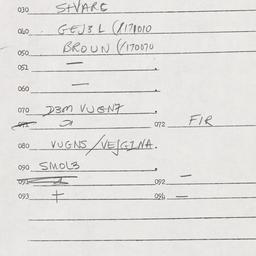 030 SHVARC
040 GEJ3L (/171010
050 BROUN (/170070
051 —
060 —
070 D3M VUGN7
072 FIR
080 VUGNS/VEJGINA.
090 SMOL3
092 —
093 +
096 —